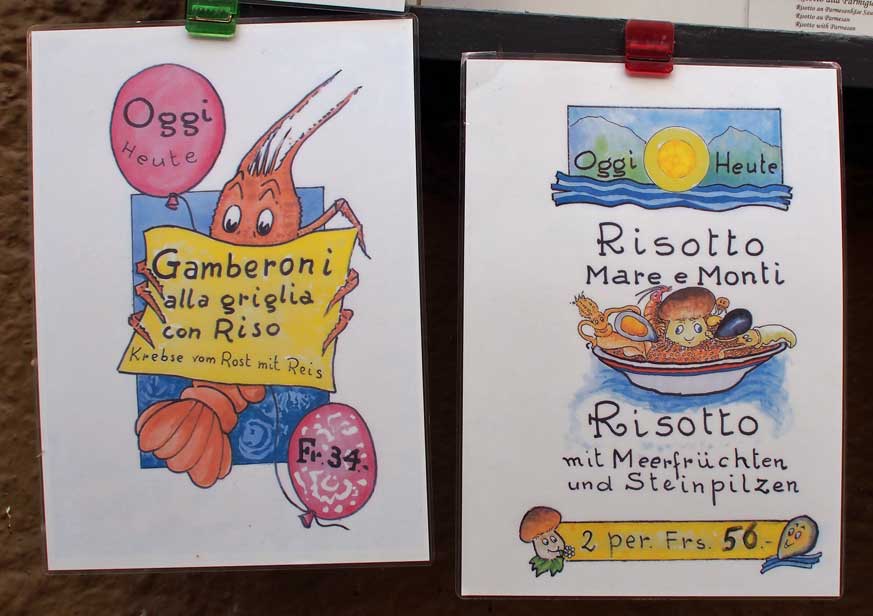 Risotto alla Parmigiana
Risotto an Parmesankäse Sauce
Risotto au Parmesan
Risotto with Parmesan
Oggi
Heute
Gamberoni
alla griglia
con Riso
Krebse vom Rost mit Reis
Fr. 34.-
Oggi Heute
Risotto
Mare e Monti
Risotto
mit Meerfrüchten
und Steinpilzen
2 per. Frs. 56.-